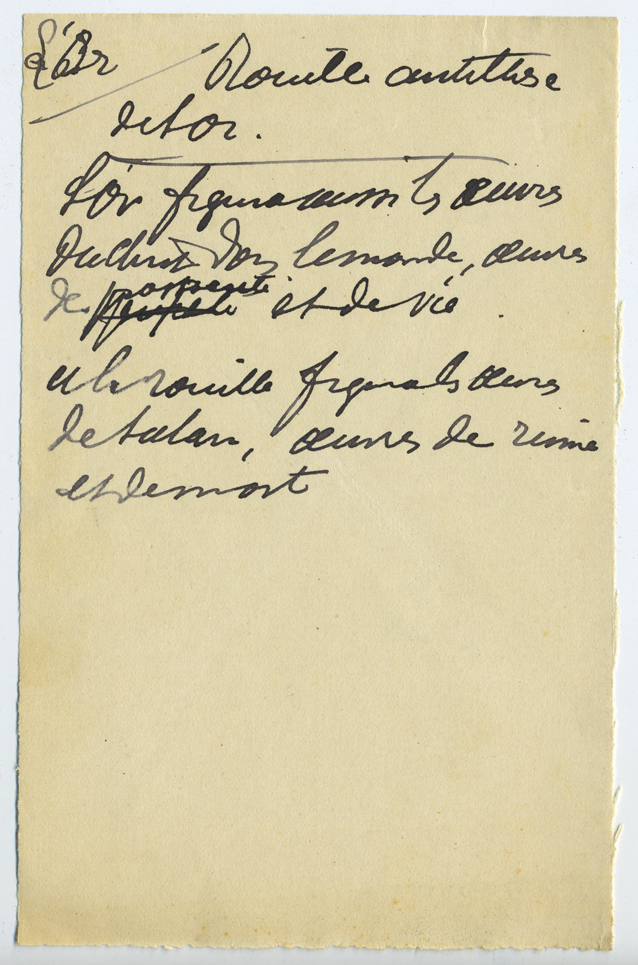 L'Or Rouille antithèse
de l'or.
L'or figura aussi les œuvres
du christ dans le monde, œuvres
de prospérité et de vie.
et la rouille figura les œuvres
de Satan, œuvres de ruine
et de mort